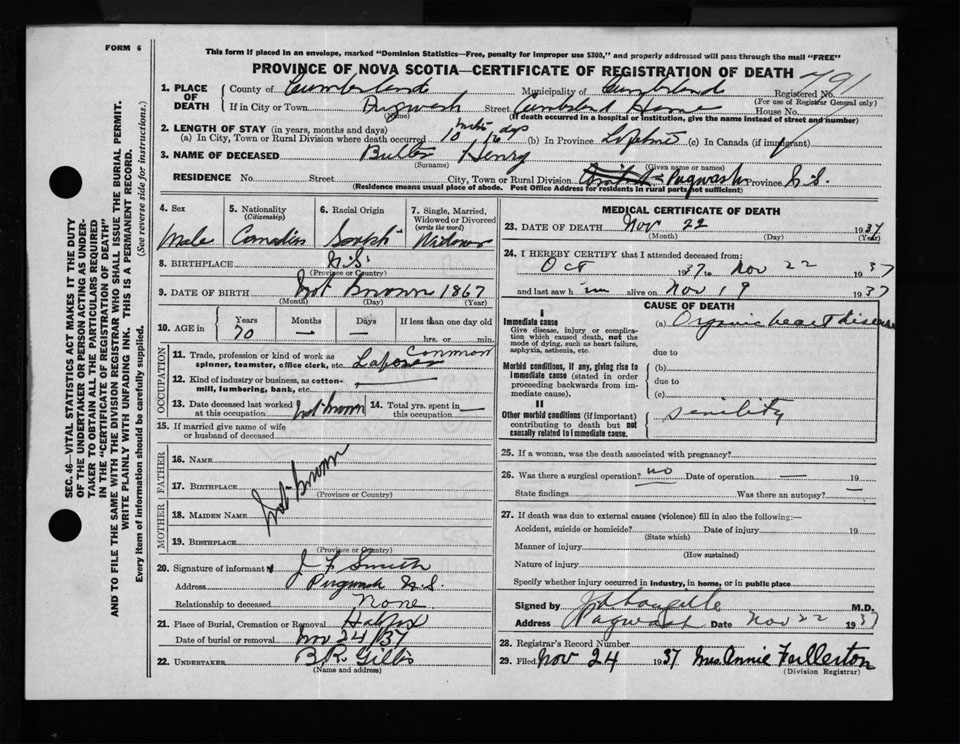 FORM 6
This form if placed in an envelope, marked "Dominion Statistics—Free, penalty for improper use $300," and properly addressed will pass through the mail "FREE"
PROVINCE OF NOVA SCOTIA—CERTIFICATE OF REGISTRATION OF DEATH
791
SEC. 46—VITAL STATISTICS ACT MAKES IT THE DUTY
OF THE UNDERTAKER OR PERSON ACTING AS UNDER-
TAKER TO OBTAIN ALL THE PARTICULARS REQUIRED
IN THE "CERTIFICATE OF REGISTRATION OF DEATH"
AND TO FILE THE SAME WITH THE DIVISION REGISTRAR WHO SHALL ISSUE THE BURIAL PERMIT.
WRITE PLAINLY WITH UNFADING INK. THIS IS A PERMANENT RECORD.
Every item of information should be carefully supplied.
(See reverse side for instructions.)
1. PLACE OF DEATH
County of Cumberland Municipality of Cumberland Registered No.
(For use of Registrar General only)
If in City or Town Pugwash Street Cumberland Home House No.
(Name) (If death occurred in a hospital or institution, give the name instead of street and number)
2. LENGTH OF STAY (in years, months and days)
(a) In City, Town or Rural Division where death occurred 10 days (b) In Province (c) In Canada (if immigrant)
3. NAME OF DECEASED Butler Henry
(Surname) (Given name or names)
RESIDENCE No. Street City, Town or Rural Division Pugwash Province N.S.
(Residence means usual place of abode. Post Office Address for residents in rural parts not sufficient)
4. Sex
Male
5. Nationality (Citizenship)
Canadian
6. Racial Origin
7. Single, Married, Widowed or Divorced (write the word)
Widower
8. BIRTHPLACE N.S.
(Province or Country)
9. DATE OF BIRTH Not known 1867
(Month) (Day) (Year)
10. AGE in Years Months Days If less than one day old
70 — — hrs. or min.
OCCUPATION
11. Trade, profession or kind of work as Common
spinner, teamster, office clerk, etc. Laborer
12. Kind of industry or business, as cotton-
mill, lumbering, bank, etc.
13. Date deceased last worked at this occupation Not known
14. Total yrs. spent in this occupation —
15. If married give name of wife
or husband of deceased
FATHER
16. NAME
17. BIRTHPLACE
(Province or Country)
Not known
MOTHER
18. MAIDEN NAME
19. BIRTHPLACE
(Province or Country)
20. Signature of informant J F Smith
Address Pugwash N.S.
Relationship to deceased None.
21. Place of Burial, Cremation or Removal Halifax
Date of burial or removal Nov 24/37
22. UNDERTAKER B.R. Gillis
(Name and address)
MEDICAL CERTIFICATE OF DEATH
23. DATE OF DEATH Nov 22 1937
(Month) (Day) (Year)
24. I HEREBY CERTIFY that I attended deceased from:
Oct 1937 to Nov 22 1937
and last saw him alive on Nov 19 1937
CAUSE OF DEATH
I
Immediate cause
Give disease, injury or complica-
tion which caused death, not the
mode of dying, such as heart failure,
asphyxia, asthenia, etc.
(a) Organic heart disease
due to
Morbid conditions, if any, giving rise to
immediate cause (stated in order
proceeding backwards from im-
mediate cause).
(b)
due to
(c)
II
Other morbid conditions (if important)
contributing to death but not
causally related to immediate cause.
senility
25. If a woman, was the death associated with pregnancy?
26. Was there a surgical operation? no Date of operation — 19
State findings Was there an autopsy? —
27. If death was due to external causes (violence) fill in also the following:—
Accident, suicide or homicide? Date of injury 19
(State which)
Manner of injury
(How sustained)
Nature of injury
Specify whether injury occurred in industry, in home, or in public place
Signed by M.D.
Address Pugwash Date Nov 22 1937
28. Registrar's Record Number
29. Filed Nov 24 1937 Mrs. Annie Fullerton
(Division Registrar)